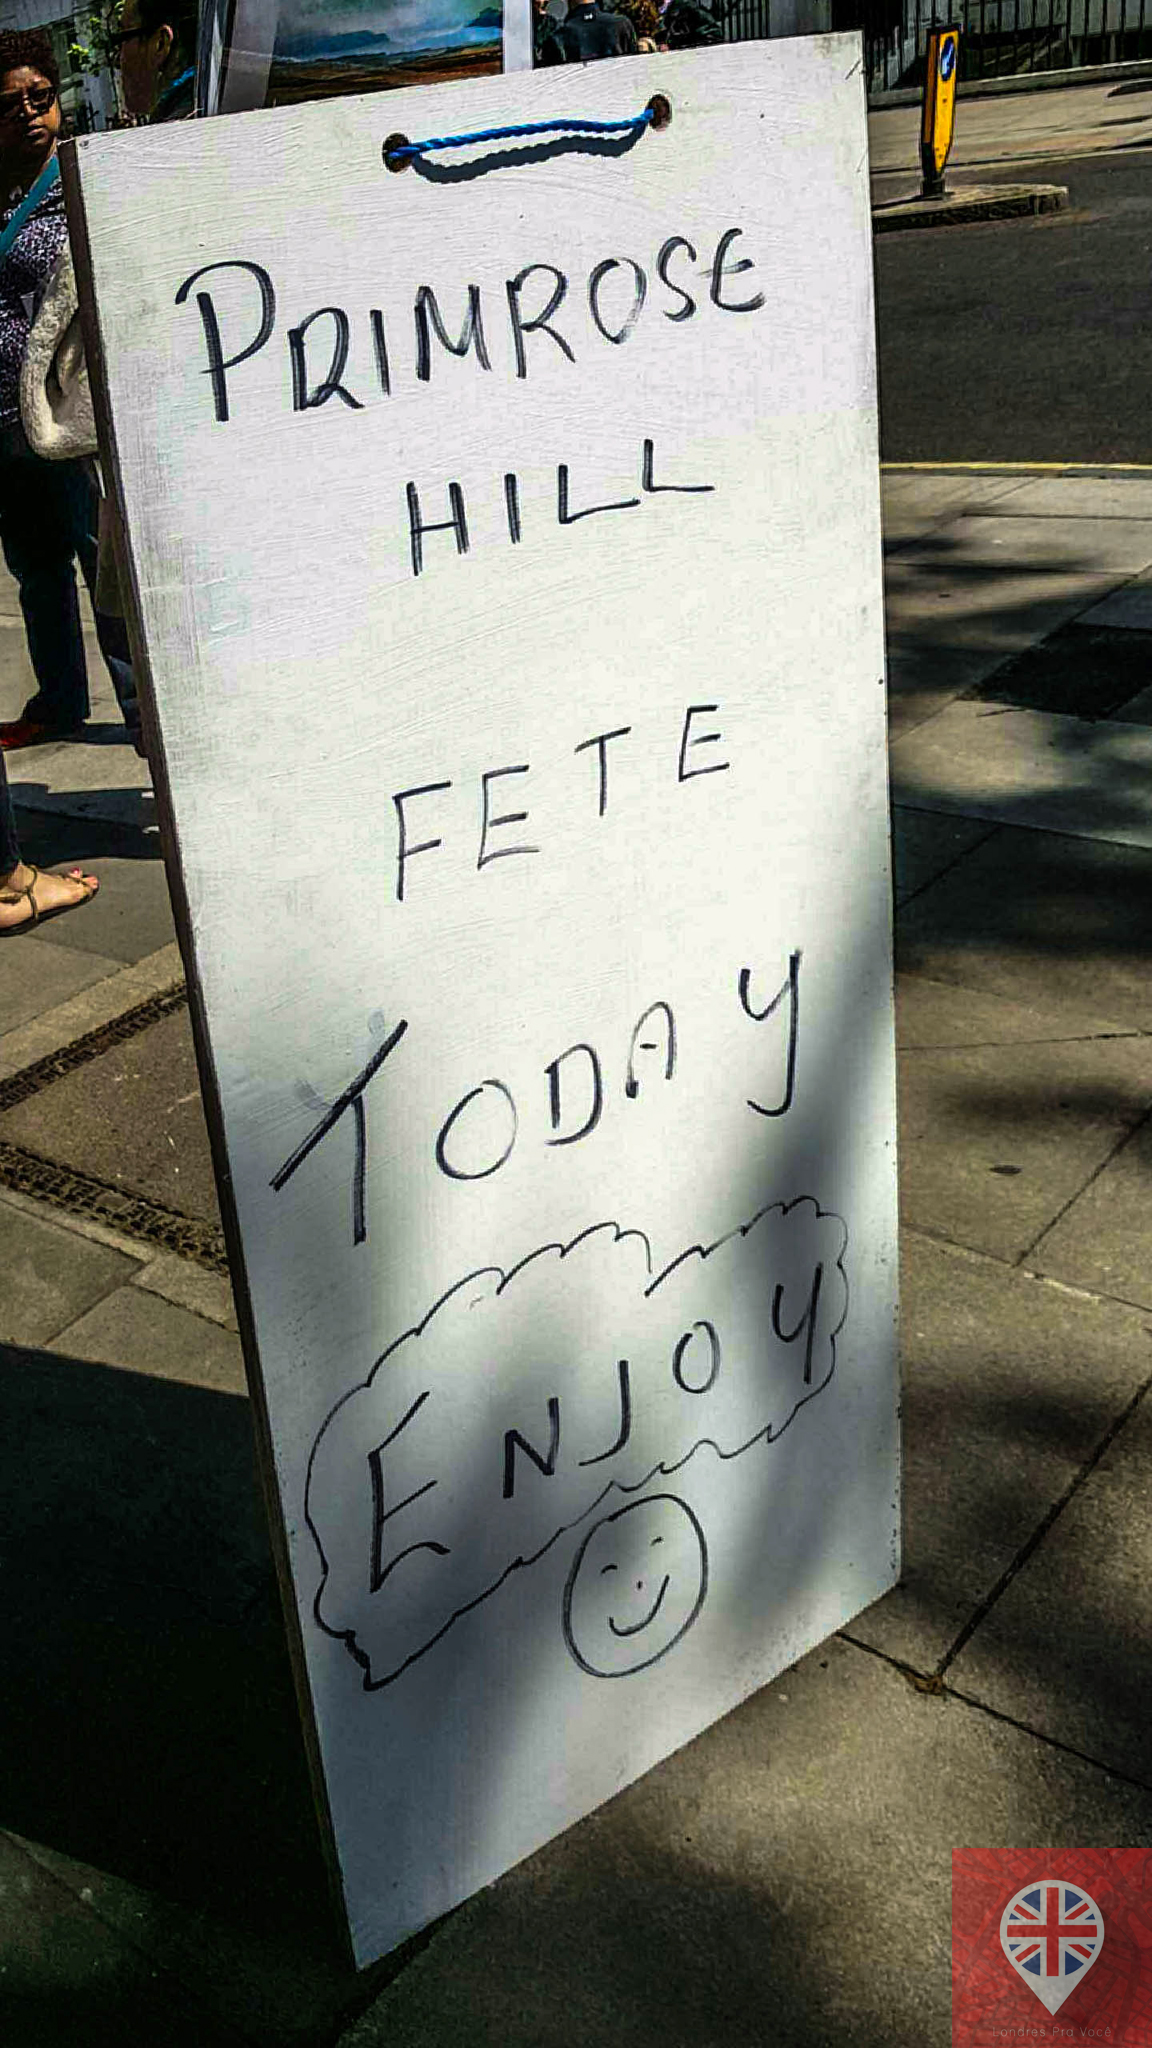 PRIMROSE
HILL
FETE
TODAY
ENJOY
Londres Pra Você